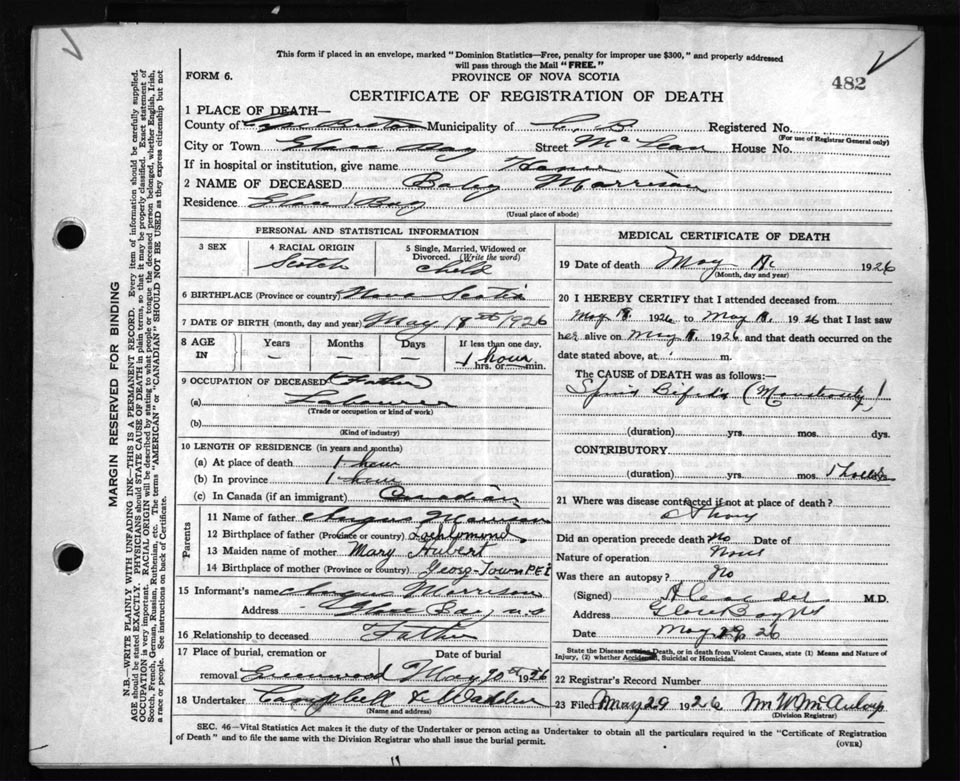 This form if placed in an envelope, marked "Dominion Statistics—Free, penalty for improper use $300," and properly addressed
will pass through the Mail "FREE."
FORM 6.
PROVINCE OF NOVA SCOTIA
482
CERTIFICATE OF REGISTRATION OF DEATH
MARGIN RESERVED FOR BINDING
N.B.—WRITE PLAINLY WITH UNFADING INK—THIS IS A PERMANENT RECORD. Every item of information should be carefully supplied.
AGE should be stated EXACTLY. PHYSICIANS should STATE CAUSE OF DEATH in plain terms, so that it may be properly classified. Exact statement of
OCCUPATION is very important. RACIAL ORIGIN will be described by stating to what people or tongue the deceased person belonged, whether English, Irish,
Scotch, French, German, Russian, Ruthenian, etc. The terms "AMERICAN" or "CANADIAN" SHOULD NOT BE USED as they express citizenship but not
a race or people. See instructions on back of Certificate.
1 PLACE OF DEATH—
County of Cape Breton Municipality of C. B Registered No.
(For use of Registrar General only)
City or Town Glace Bay Street McLean House No.
If in hospital or institution, give name Home
2 NAME OF DECEASED Baby Morrison
Residence Glace Bay
(Usual place of abode)
PERSONAL AND STATISTICAL INFORMATION
3 SEX 4 RACIAL ORIGIN Scotch 5 Single, Married, Widowed or Divorced. (Write the word) Child
6 BIRTHPLACE (Province or country) Nova Scotia
7 DATE OF BIRTH (month, day and year) May 18th 1926
8 AGE IN Years — Months — Days — If less than one day, 1 hour hrs. or min.
9 OCCUPATION OF DECEASED (Father)
(a) Labourer
(Trade or occupation or kind of work)
(b)
(Kind of industry)
10 LENGTH OF RESIDENCE (in years and months)
(a) At place of death 1 hour
(b) In province 1 hour
(c) In Canada (if an immigrant) Canadian
Parents
11 Name of father Angus Morrison
12 Birthplace of father (Province or country) Loch Lomond
13 Maiden name of mother Mary Hubert
14 Birthplace of mother (Province or country) Georg-Town P.E.I
15 Informant's name Angus Morrison
Address Glace Bay N.S
16 Relationship to deceased Father
17 Place of burial, cremation or Date of burial
removal Greenwood May 20th 1926
18 Undertaker Campbell & Wadden
(Name and address)
MEDICAL CERTIFICATE OF DEATH
19 Date of death May 18 1926
(Month, day and year)
20 I HEREBY CERTIFY that I attended deceased from
May 18 1926 to May 18 1926 that I last saw
her alive on May 18 1926 and that death occurred on the
date stated above, at m.
The CAUSE OF DEATH was as follows:—
Spina Bifida (Monstrosity)
(duration) yrs. mos. dys.
CONTRIBUTORY
(duration) yrs. mos. 1 hour dys
21 Where was disease contracted if not at place of death?
Did an operation precede death No Date of
Nature of operation None
Was there an autopsy? No
(Signed) M.D.
Address Glace Bay NS
Date May 29 26
State the Disease causing Death, or in death from Violent Causes, state (1) Means and Nature of
Injury, (2) whether Accidental, Suicidal or Homicidal.
22 Registrar's Record Number
23 Filed May 29 1926
(Division Registrar)
SEC. 46—Vital Statistics Act makes it the duty of the Undertaker or person acting as Undertaker to obtain all the particulars required in the "Certificate of Registration
of Death" and to file the same with the Division Registrar who shall issue the burial permit.
(OVER)